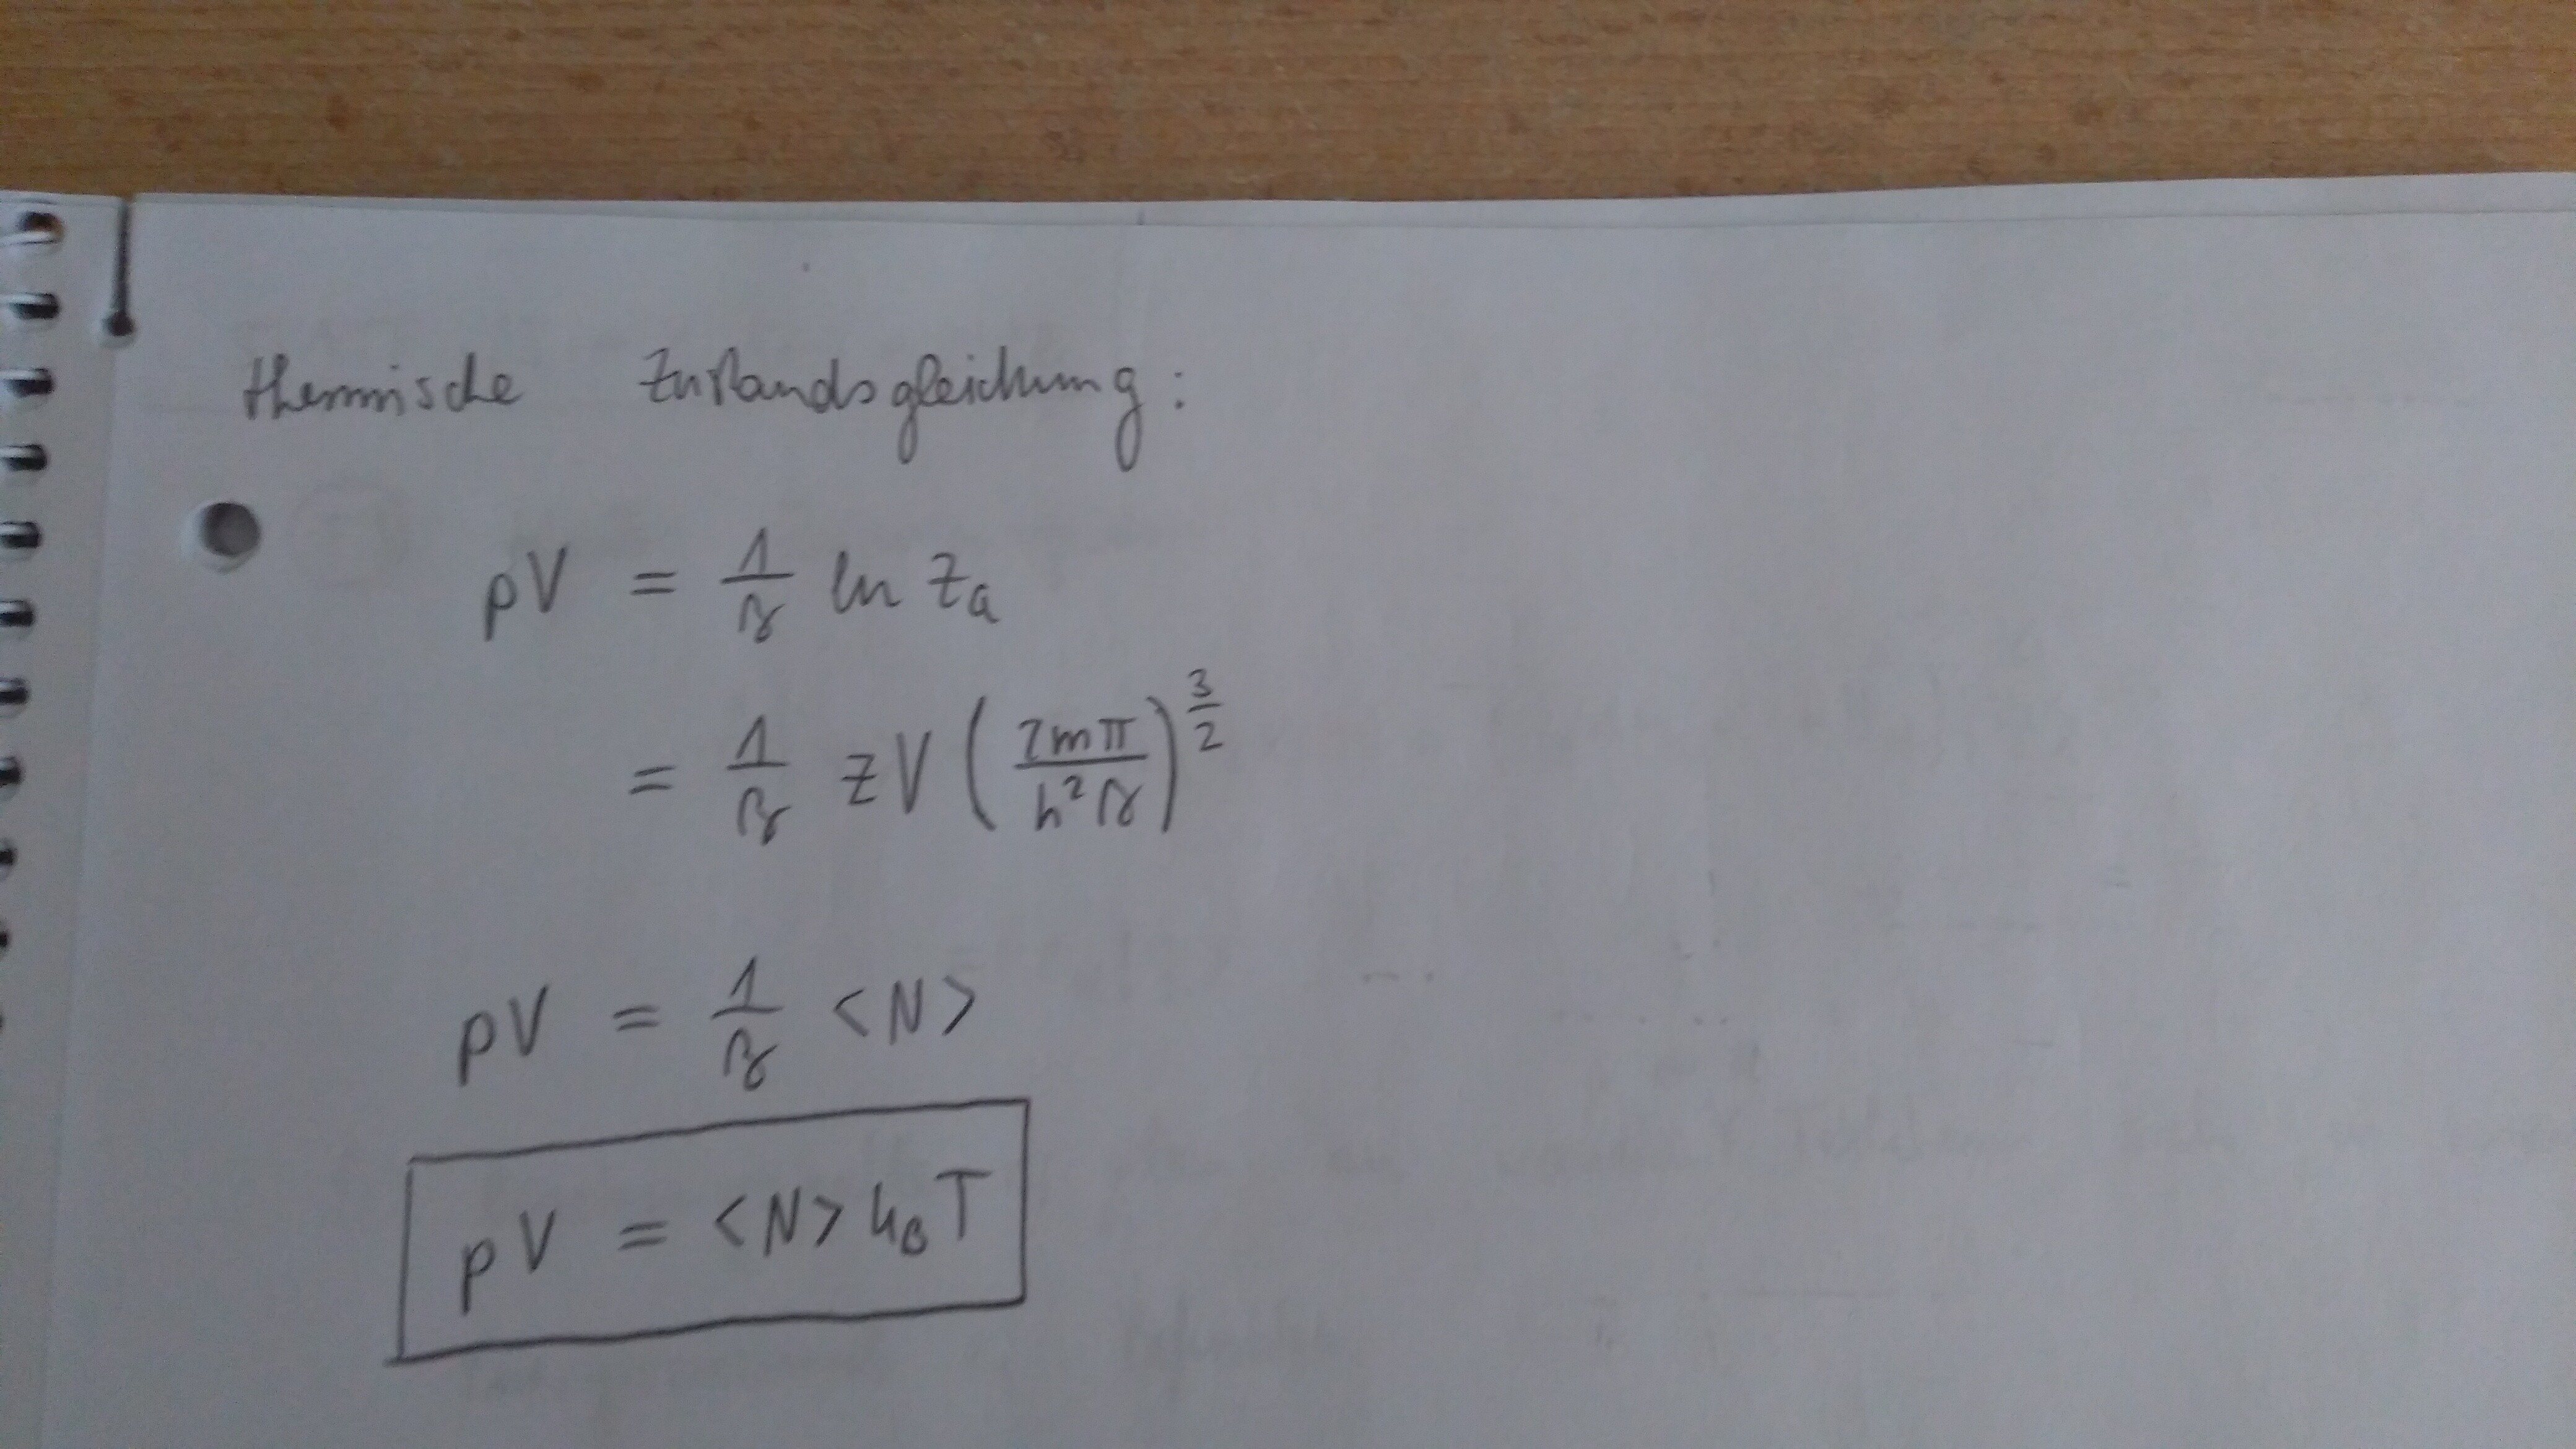 thermische Zustandsgleichung:
pV = 1/β ln Z_G
= 1/β zV (2mπ / h²β)^(3/2)
pV = 1/β <N>
pV = <N> k_B T